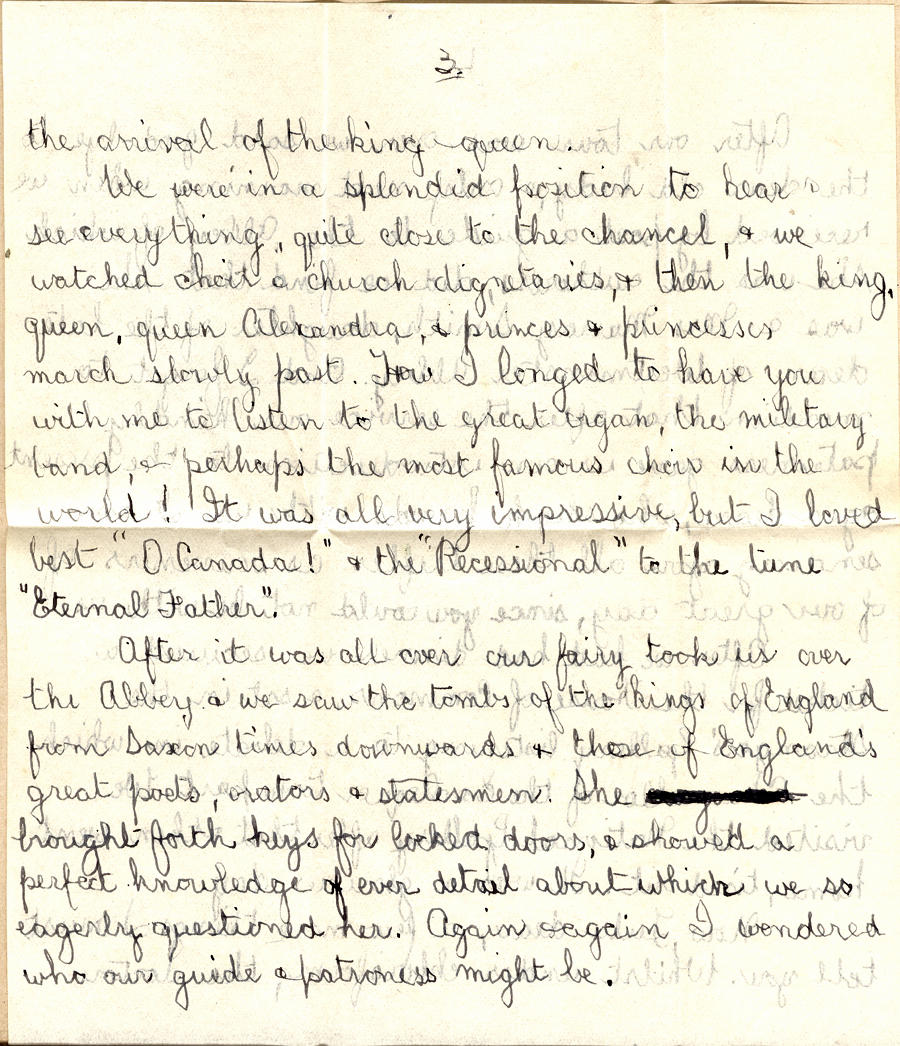 3.
the arrival of the king & queen.
We were in a splendid position to hear &
see everything, quite close to the chancel, & we
watched choir & church dignetaries, & then the king,
queen, queen Alexandra, & princes & princesses
march slowly past. How I longed to have you
with me to listen to the great organ, the military
band, & perhaps the most famous choir in the
world! It was all very impressive, but I loved
best "O Canada!" & the "Recessional" to the tune
"Eternal Father".
After it was all over our fairy took us over
the Abbey & we saw the tombs of the kings of England
from Saxon times downwards & those of England's
great poets, orators & statesmen. She
brought forth keys for locked doors, & showed a
perfect knowledge of ever detail about which we so
eagerly questioned her. Again & again I wondered
who our guide & patroness might be.